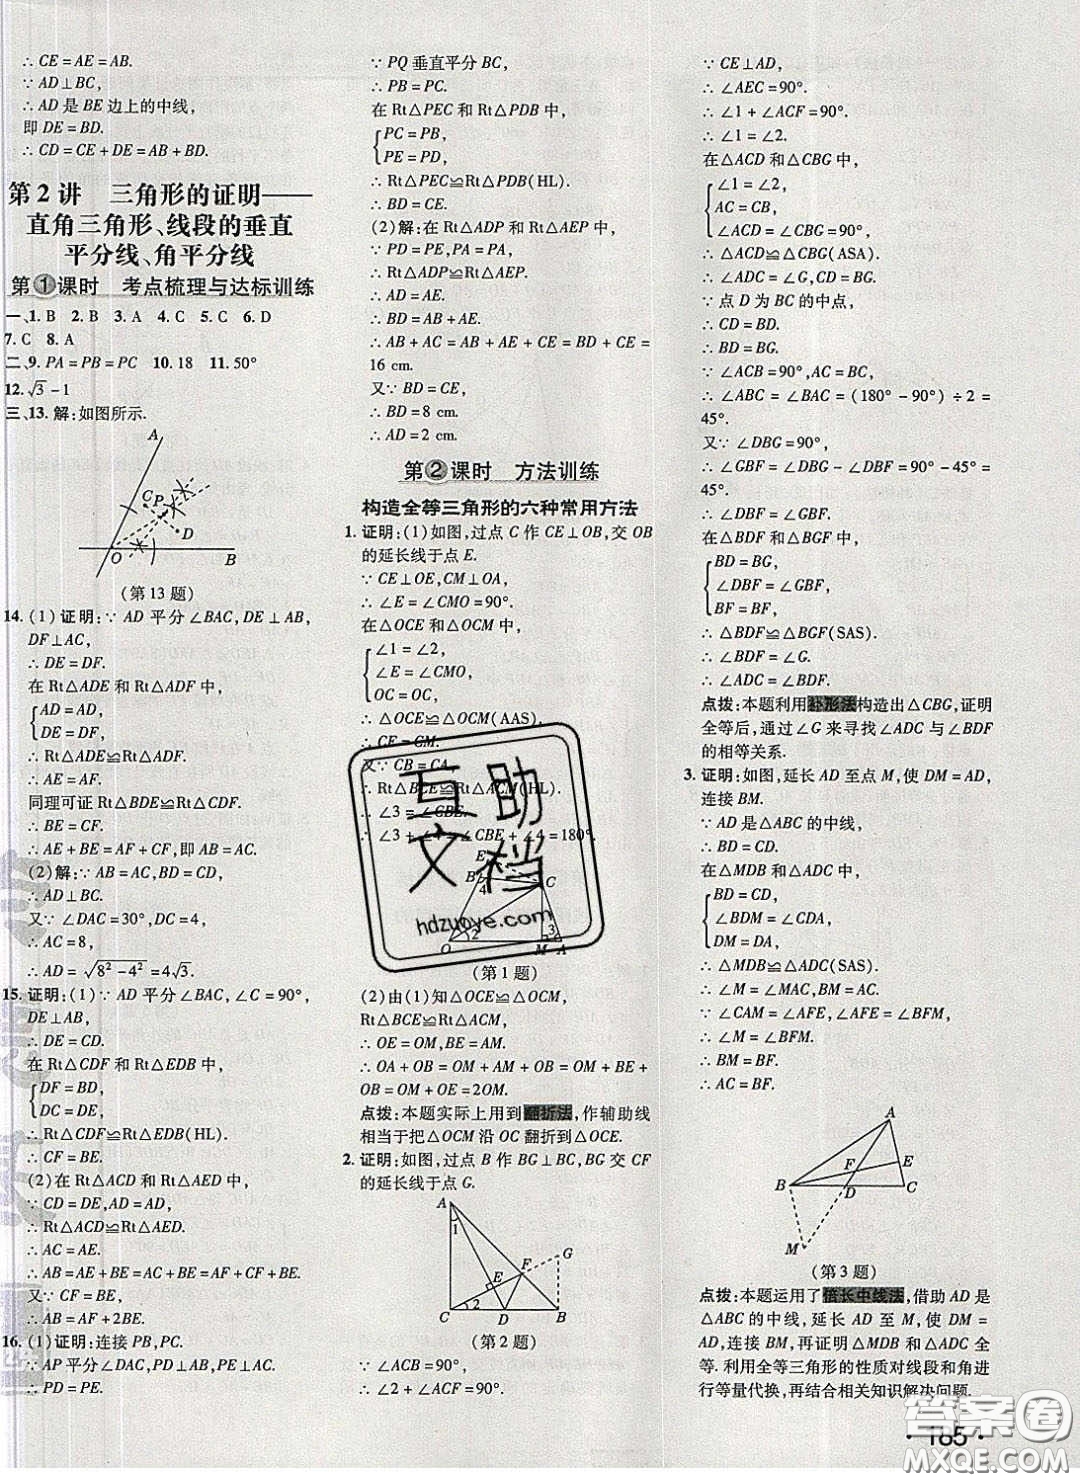 ∴ CE = AE = AB.
∵ AD⊥BC,
∴ AD 是 BE 边上的中线,
即 DE = BD.
∴ CD = CE + DE = AB + BD.
第 2 讲 三角形的证明——
直角三角形、线段的垂直
平分线、角平分线
第①课时 考点梳理与达标训练
一、1. B 2. B 3. A 4. C 5. C 6. D
7. C 8. A
二、9. PA = PB = PC 10. 18 11. 50°
12. √3 - 1
三、13. 解:如图所示.
A
C P
D
O B
(第 13 题)
14. (1)证明:∵ AD 平分∠BAC,DE⊥AB,
DF⊥AC,
∴ DE = DF.
在 Rt△ADE 和 Rt△ADF 中,
AD = AD,
DE = DF,
∴ Rt△ADE≌Rt△ADF.
∴ AE = AF.
同理可证 Rt△BDE≌Rt△CDF.
∴ BE = CF.
∴ AE + BE = AF + CF,即 AB = AC.
(2)解:∵ AB = AC,BD = CD,
∴ AD⊥BC.
又∵ ∠DAC = 30°,DC = 4,
∴ AC = 8,
∴ AD = √(8² - 4²) = 4√3.
15. 证明:(1)∵ AD 平分∠BAC,∠C = 90°,
DE⊥AB,
∴ DE = CD.
在 Rt△CDF 和 Rt△EDB 中,
DF = BD,
DC = DE,
∴ Rt△CDF≌Rt△EDB(HL).
∴ CF = BE.
(2)在 Rt△ACD 和 Rt△AED 中,
∵ CD = DE,AD = AD,
∴ Rt△ACD≌Rt△AED.
∴ AC = AE.
∴ AB = AE + BE = AF + CF + BE.
又∵ CF = BE,
∴ AB = AF + 2BE.
16. (1)证明:连接 PB,PC.
∵ AP 平分∠DAC,PD⊥AD,PE⊥AC,
∴ PD = PE.
∵ PQ 垂直平分 BC,
∴ PB = PC.
在 Rt△PEC 和 Rt△PDB 中,
PC = PB,
PE = PD,
∴ Rt△PEC≌Rt△PDB(HL).
∴ BD = CE.
(2)解:在 Rt△ADP 和 Rt△AEP 中,
∵ PD = PE,AP = AP,
∴ Rt△ADP≌Rt△AEP.
∴ AD = AE.
∵ BD = AB + AE,
∴ AB + AC = AB + AE + CE = BD + CE =
16 cm.
又∵ BD = CE,
∴ BD = 8 cm.
∴ AD = 2 cm.
第②课时 方法训练
构造全等三角形的六种常用方法
1. 证明:(1)如图,过点 C 作 CE⊥OB,交 OB
的延长线于点 E.
∵ CE⊥OE,CM⊥OA,
∴ ∠E = ∠CMO = 90°.
在△OCE 和△OCM 中,
∠1 = ∠2,
∠E = ∠CMO,
OC = OC,
∴ △OCE≌△OCM(AAS).
∴ CE = CM.
又∵ CB = CA,
∴ Rt△BCE≌Rt△ACM(HL).
∴ ∠3 = ∠CBE.
∴ ∠3 + ∠4 = ∠CBE + ∠4 = 180°.
E
B C
4
O 2 3
M A
(第 1 题)
(2)由(1)知△OCE≌△OCM,
Rt△BCE≌Rt△ACM,
∴ OE = OM,BE = AM.
∴ OA + OB = OM + AM + OB = OM + BE +
OB = OM + OE = 2OM.
点拨:本题实际上用到翻折法,作辅助线
相当于把△OCM 沿 OC 翻折到△OCE.
2. 证明:如图,过点 B 作 BG⊥BC,BG 交 CF
的延长线于点 G.
A
1
G
F
E
2
C D B
(第 2 题)
∵ ∠ACB = 90°,
∴ ∠2 + ∠ACF = 90°.
∵ CE⊥AD,
∴ ∠AEC = 90°.
∴ ∠1 + ∠ACF = 90°.
∴ ∠1 = ∠2.
在△ACD 和△CBG 中,
∠1 = ∠2,
AC = CB,
∠ACD = ∠CBG = 90°,
∴ △ACD≌△CBG(ASA).
∴ ∠ADC = ∠G,CD = BG.
∵ 点 D 为 BC 的中点,
∴ CD = BD.
∴ BD = BG.
∵ ∠ACB = 90°,AC = BC,
∴ ∠ABC = ∠BAC = (180° - 90°) ÷ 2 =
45°.
又∵ ∠DBG = 90°,
∴ ∠GBF = ∠DBG - ∠DBF = 90° - 45° =
45°.
∴ ∠DBF = ∠GBF.
在△BDF 和△BGF 中,
BD = BG,
∠DBF = ∠GBF,
BF = BF,
∴ △BDF≌△BGF(SAS).
∴ ∠BDF = ∠G.
∴ ∠ADC = ∠BDF.
点拨:本题利用补形法构造出△CBG,证明
全等后,通过∠G 来寻找∠ADC 与∠BDF
的相等关系.
3. 证明:如图,延长 AD 至点 M,使 DM = AD,
连接 BM.
∵ AD 是△ABC 的中线,
∴ BD = CD.
在△MDB 和△ADC 中,
BD = CD,
∠BDM = ∠CDA,
DM = DA,
∴ △MDB≌△ADC(SAS).
∴ ∠M = ∠CAM,BM = AC.
∵ ∠CAM = ∠AFE,∠AFE = ∠BFM,
∴ ∠M = ∠BFM.
∴ BM = BF.
∴ AC = BF.
A
F E
B D C
M
(第 3 题)
点拨:本题运用了倍长中线法,借助 AD 是
△ABC 的中线,延长 AD 至点 M,使 DM =
AD,连接 BM,再证明△MDB 和△ADC 全
等. 利用全等三角形的性质对线段和角进
行等量代换,再结合相关知识解决问题.
· 165 ·
互助
文档
hdzuoye.com
答案圈
MXQE.COM